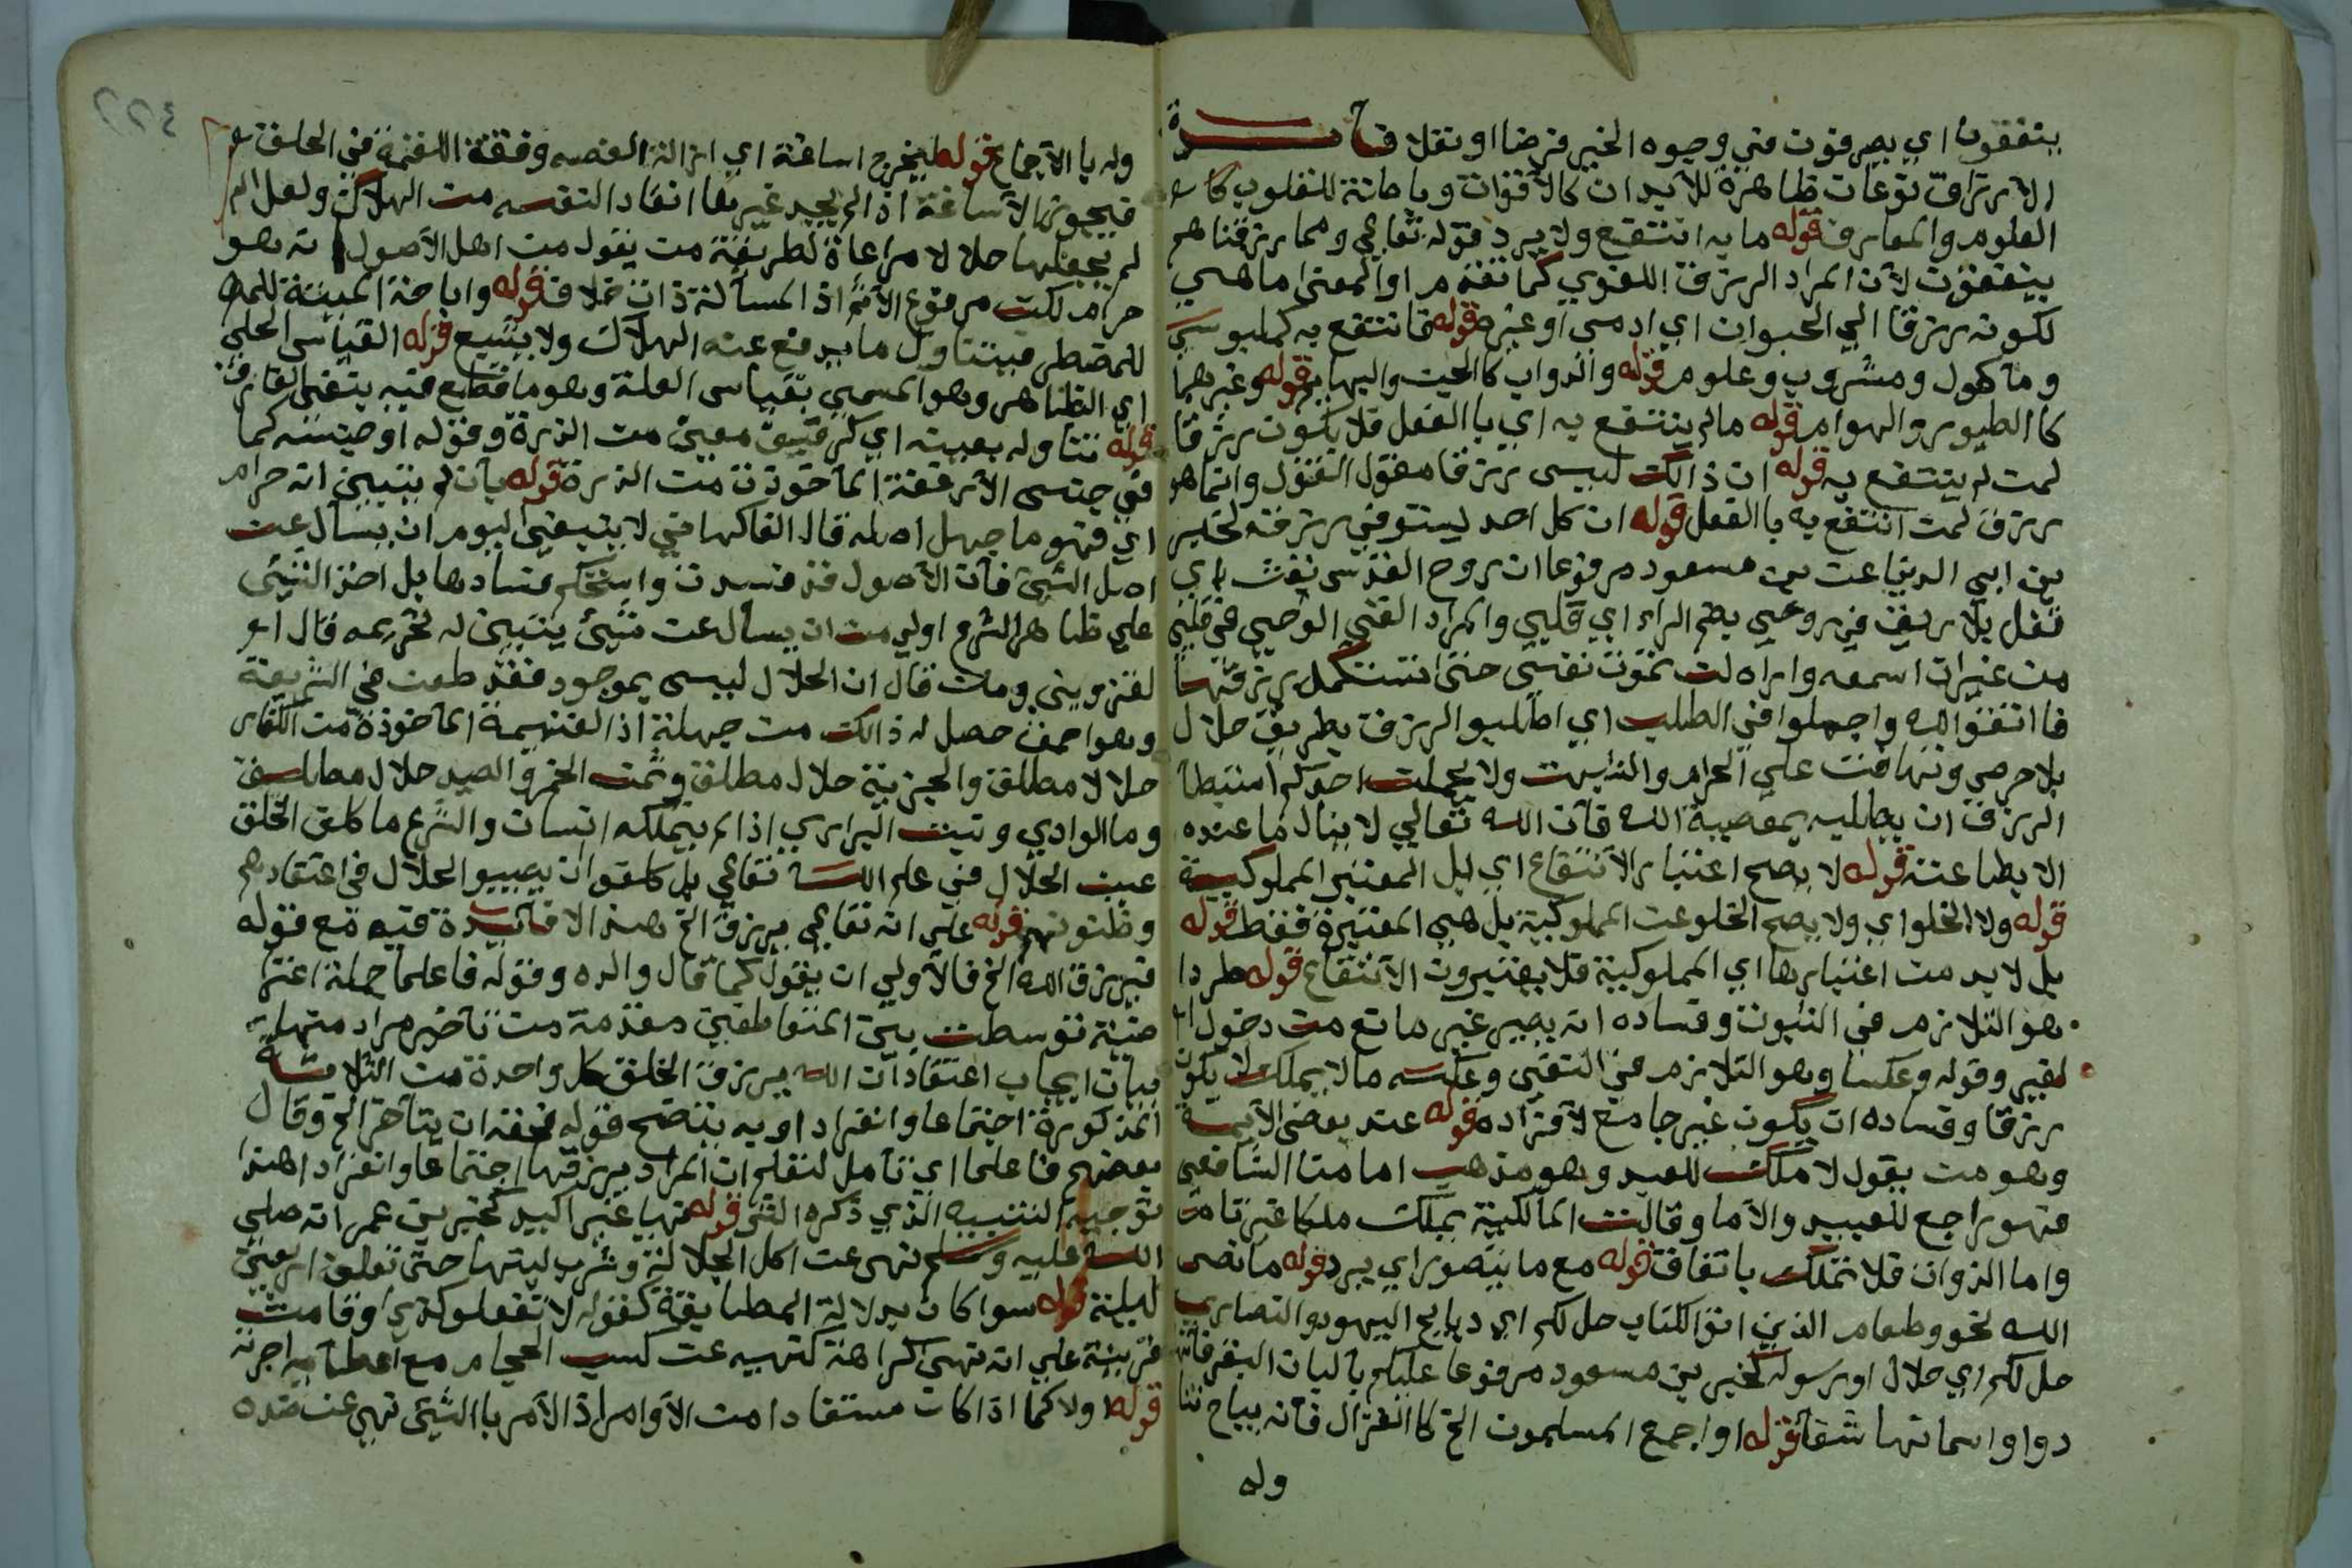 ينفقون اي يصرفون في وجوه الخير فرضا او نفلا فايدة
الارزاق نوعان ظاهرة للابدان كالاقوات وباطنة للقلوب كا
العلوم والمعارف قوله ما به انتفع ولا يرد قوله تعالى ومما رزقناهم
ينفقون لان المراد الرزق اللغوي كما تقدم او المعنى ما هيي
لكونه رزقا الي الحيوان اي ادمي او غيره قوله فانتفع به كملبوس
وماكول ومشروب وعلوم قوله والدواب كالحيت والبهايم قوله وغيرهما
كا الطيور والهوام قوله مالم ينتفع به اي با الفعل فلا يكون رزقا
لمن لم ينتفع به قوله ان ذالك ليس رزقا مقول القول وانما هو
رزق لمن انتفع به با الفعل قوله ان كل احد يستوفي رزقه لخبر
بن ابي الدينا عن بن مسعود مرفوعا ان روح القدس نفث اي
تفل بلا ريق في روعي بضم الراء اي قلبي والمراد القى الوحي في قلبي
من غير ان اسمعه واراه لن تموت نفس حتى تستكمل رزقها
فا اتقوا الله واجملوا في الطلب اي اطلبوا الرزق بطريق حلال
بلا حرص وتهافت على الحرام والشبهت ولا يحملن احدكم استبطا
الرزق ان يطلبه بمعصية الله فان الله تعالى لا ينال ما عنده
الا بطاعته قوله لا يصح اعتبار الانتفاع اي بل المعتبر المملوكية
قوله ولا الخلو اي ولا يصح الخلو عن المملوكية بل هي المعتبرة فقط قوله
بل لا بد من اعتبارها اي المملوكية فلا يعتبرون الانتفاع قوله طردا
هو التلازم في الثبوت وفساده انه يصير غير مانع من دخول
لغير وقوله وعكسا وهو التلازم في النفي وعكسه ما لا يملك لا يكون
رزقا وفساده ان يكون غير جامع لافراده قوله عند بعض الايمة
وهو من يقول لا ملك للعبد وهو مذهب امامنا الشافعي
فهو راجع للعبيد والاما وقالت المالكية يملك ملكا غير تام
واما الدواب فلا تملك باتفاق قوله مع ما يتصور اي يرد قوله ما نص
الله نحو وطعام الذين اتوا الكتاب حل لكم اي دبايح اليهود والنصارى
حل لكم اي حلال او رسوله كخبر بن مسعود مرفوعا عليكم بالبان البقر فانها
دوا واسمانها شفا قوله او اجمع المسلمون الخ كا الغزال فانه يباح
وله
وله با الاجماع قوله ليخرج اساغة اي ازالة الغصه وقفة اللقمة في الحلق
فيجوز الاساغة اذا لم يجد غيرها انقاد النفسه من الهلاك ولعل
لم يجعلها حلالا مراعاة لطريقة من يقول من اهل الاصول انه هو
حرام لكن مرفوع الاثم اذ المسألة ذات خلاف قوله واباحة الميتة للمضـ
للمضطر فيتناول ما يدفع عنه الهلاك ولا يشبع قوله القياس الجلي
اي الظاهر وهو المسمى بقياس العلة وهو ما قطع فيه بنفي الفارق
قوله تناوله بعينه اي كرقيق معين من الذرة وقوله او جنسه كما
في جنس الارغفة المأخوذة من الذرة قوله بان لم يتبين انه حرام
اي فهو ما جهل اصله قال الفاكهاني لا ينبغي اليوم ان يسأل عن
اصل الشيئ فان الاصول قد فسدت واستحكم فسادها بل اخذ الشيئ
علي ظاهر الشرع اولي من ان يسأل عن شيئ يتبين له تحريمه قال
لقزويني ومن قال ان الحلال ليس بموجود فقد طعن في الشريعة
وهو احمق حصل له ذالك من جهلة اذ الغنيمة المأخوذة من الكفار
حلالا مطلقا والجزية حلال مطلق وثمن الخمر والصيد حلال مطلق
وما الوادي ونبت البراري اذا لم يتملكه انسان والشرع ما كلف الخلق
عين الحلال في علم الله تعالى بل كلفو ان يصيبو الحلال في اعتقادهم
وظنونهم قوله علي انه تعالى يرزق الخ هذا لا فايدة فيه مع قوله
فيرزق الله الخ فالاولي ان يقول كما قال والده وقوله فاعلما جملة اعترا
ضية توسطت بين المتعاطفين مقدمة من تأخير مراد منها
بيان ايجاب اعتقاد ان الله يرزق الخلق كل واحدة من الثلاثة
المذكورة اجتماعا وانفراد او به يتضح قوله فحقه ان يتأخر الخ وقال
بعضهم فاعلما اي تأمل لتعلم ان المراد يرزقها اجتماعا وانفراد اهذا
توجيه التنبيه الذي ذكره الش قوله نهيا غير اكيد كخبر بن عمر انه صلي
الله عليه وسلم نهى عن اكل الجلالة وشرب لبنها حتى تعلف اربعين
ليلة قوله سوا كان بدلالة المطابقة كقوله لا تفعلو كذي او قامت
قرينة علي انه نهي كراهة كنهيه عن كسب الحجام مع اعطايه اجرته
قوله اولا كما اذا كان مستفادا من الاوامر اذ الامر با الشيئ نهي عن ضده